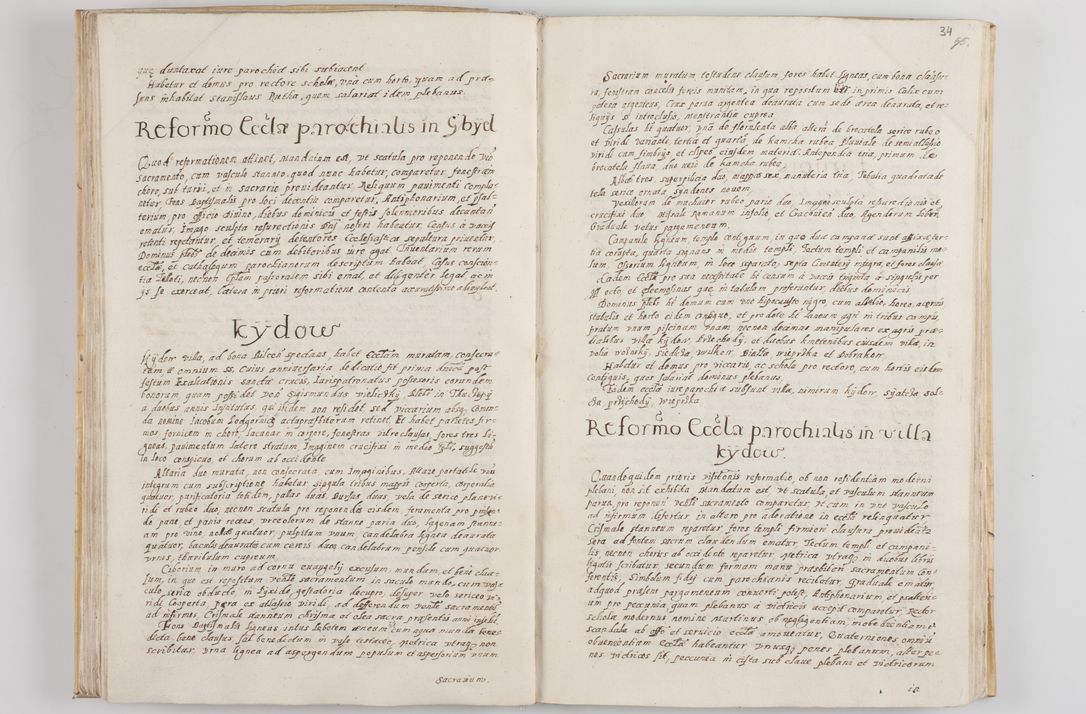 que duntaxat iure parochiæ sibi subiacent
Habetur et domus pro rectore scholæ, vna cum horto, quam ad præ-
sens inhabitat Stanislaus Rætha, quem salariat idem plebanus.
Reformo Eccla parochialis in Gbyd
Quod reformationem attinet, mandatum est, vt scatula pro reponendo Vno
Sacramento, cum vasculo stanneo, quod nunc habetur, comparetur, fenestræ in
choro, sub turri, et in sacrario prouideantur. Reliquum pauimenti comple-
atur, fons baptismalis pro loci decentia comparetur, Antiphonarium, et psal-
terium, pro officio diuino, diebus dominicis et festis solennioribus decantan
ematur, Imago sculpta resurectionis Dni nostri habeatur, Census a varijs
retenti repetantur, et temerarij detentores Ecclesiastica sepultura priuentur,
Dominus plebs de decimis cum debitoribus iure agat. Inuentarium rerum
ecclæ, et cathalogum parochianorum descriptum habeat, Casus conscien-
tiæ Toleti, necnon Eplam pastoralem sibi emat, et diligenter legat ac in
ijs se exerceat, Cætera in priori reformatione contenta accuratissime adimpleat.
Kÿdow
Kÿdow villa, ad bona Bilcen spectans, habet Ecclam muratam, consecra-
tam tt omnium ss. Cuius anniuersaria dedicatio fit prima dnica post
festum Exaltationis sanctæ crucis, Iurispatronatus possessoris eorundem
bonorum, quam possidet Vn Sigismundus Vielicky, Abbs in
a duobus annis Institutus, qui ibidem non residet, sed viccarium absq. Comen-
da nomine Iacobum Lodzgorium actuprasbiterum retinet, Et habet parietes fir-
mos, fornicem in choro, lacunar in corpore, fenestras vitro clausas, fores tres li-
gneas, pauimentum latere stratum, Imaginem crucifixi in medio Tpli, suggestū
in loco conspicuo, et chorum ab occidente.
Altaria duo murata, non consecrata, cum Imaginibus, Altare portatile vnū
integrum cum subscriptione habetur, singula tribus mappis cooperta, corporalia
quatuor, purificatoria totidem, pallas duas, Bursas duas, vela de serico plane vi-
ridi et rubeo duo, necnon scatula pro reponenda eisdem, foramenta pro
do pane et panis recens, vrceolorum de stanno paria duo, lagenam stanne-
am pro vino, nolas quatuor, pulpitum vnum, candelabra lignea deaurata
quatuor, baculos deauratos cum cereis duos, candelabrum pensile cum quatuor
vrnis, thuribulum cupreum.
Ciborium in muro ad cornu euangelÿ excisum, mundum, et bene clau-
sum, in quo est repositum Venle sacramentum in saculo mundo, cum vas-
culo, serico obducto, in Pixide, gestatoria de cupro, desuper velo sericeo vi-
ridi Cooperta, pera ex atlassio viridi, ad defferendum Venle sacramentū
ad infirmos, Crismale stanneum, chrisma et olea sacra præsentis anni inscript.
Fons Baptismalis ligneus intus lebetem æneum cum aqua munda bene-
dicta, bene clausus, sal benedictum in vase testaceo, metrica vtraq non
scribitur, vrna lignea ad aspergendum populum et aspersorium vnum
Sacrarium.
34
56.
Sacrarium muratum testudine clausum, fores habet ligneas, cum bona clausu-
ra, fenestram cancela ferreis munitam, in qua repositum est in primis Calix cum
patena argenteus, Crux parua argentea deaurata cum sede ærea deaurata, et re-
liquijs si introclusis, monstrantia cuprea
Casulas ht quatuor, vnā de floralenta alba alterā de brocatela serica rubeo
et viridi variante, tertiā et quartā, de kamcha rubea, Pluuiale de semiatlassio
viridi cum fimbrijs et clipeo eiusdem materiæ. Antependia tria, primum de
brocatela flaua, duo vero de kamcha rubea.
Albæ tres, superpilicia duo, mappæ sex, manuteria tria, Tobalia quadrata de
tela serico ornata, Syndones nouem.
Vexillorum de machaier rubeo paria duo, Imagines sculptæ resurrectionis et
crucifixi duo, Missale Romanum in folio, et Cracouien duo, Agendorum libri,
Graduale vetus pargameneum.
Campanile ligneum, templo contiguum, in quo duæ campanæ sunt affixæ, ter-
tia corrupta, quarta signans in medio templi, Tectum templi et campanilis ma-
lum, Ossorium ligneum, in loco separato, septa Cemeterÿ integra, et fores clausæ
Eadem Eccla pro sua necessitate ht censum a vaccis triginta a singulis per
gr octo, et eleemosinas quæ in tabulam proferuntur, diebus dominicis
Dominus plebs ht domum cum vno hipocausto nigro, cum allodio, horreo, aceruis
stabulis et horto eidem contiguo, et pro dote ht laneum agri in tribus campis,
pratum vnum piscinam vnam necnon decimas manipulares ex agris præ-
dialibus villæ kÿdow, Przichodÿ, et duobus kmethonibus eiusdem villæ, in
polia Wolnskÿ, Siedlcza Wilkow, Bialla, Wieprska et Bobrzkow.
Habetur et domus pro viccario, ac schola pro rectore, cum hortis eisdem
contiguis, quos salariat dominus plebanus.
Eidem ecclæ iure parochiæ subsunt villæ, nimirum kÿdow, Siadcze, Sol-
cza, przÿchodÿ, Wieprska.
Reformo Eccla parochialis in villa
kÿdow.
Quandoquidem prioris visitonis reformatio, ob non residentiam moderni
plebani, non sit exhibita Mandatum est, vt scatula, et vasculum stanneum
parua, pro reponen Venli sacramento comparetur, vt cum in vno vasculo
ad infirmum defertur in altero pro adoratione in eccla relinquatur.
Crismale stanneum reparetur, fores templi firmiori clausura prouideantur
sera ad fontem sacrum claudendum ematur. Tectum templi et campani-
lis necnon chorus ab occidenti reparetur, metrica vtraq in duobus libris
ligatis scribatur, secundum formam manu præsbiteri sacramentum con-
ferentis, Simbolum fidej cum parochianis recitetur, Graduale ematur,
ad quod præsens pargameneum conuerti poterit, Antiphonarium et psalteri-
um pro pecunia, quam plebanus a vitricis accepit comparetur, Rector
scholæ modernus nomine Martinus ob negligentiam, inobedientiam, et
scandala ab offo et seruicio ecclæ amoueatur, Quaterniones omniū
obuentionum Ecclæ habeantur vnusq penes plebanum, alter pe-
nes vitricos sit, peccunia in cista sub claue plebani et vitricorum
ia